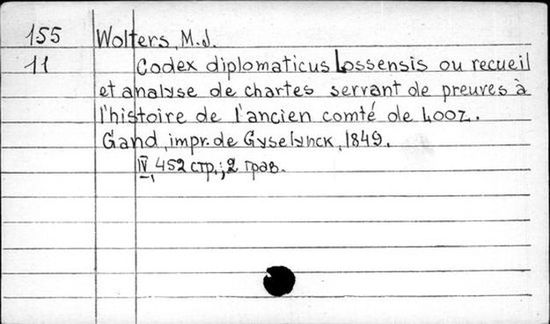 155 Wolters, M.J.
11 Codex diplomaticus Lossensis ou recueil
et analyse de chartes servant de preuves à
l'histoire de l'ancien comté de Looz.
Gand, impr. de Gyselynck, 1849.
IV, 452 стр.; 2 грав.